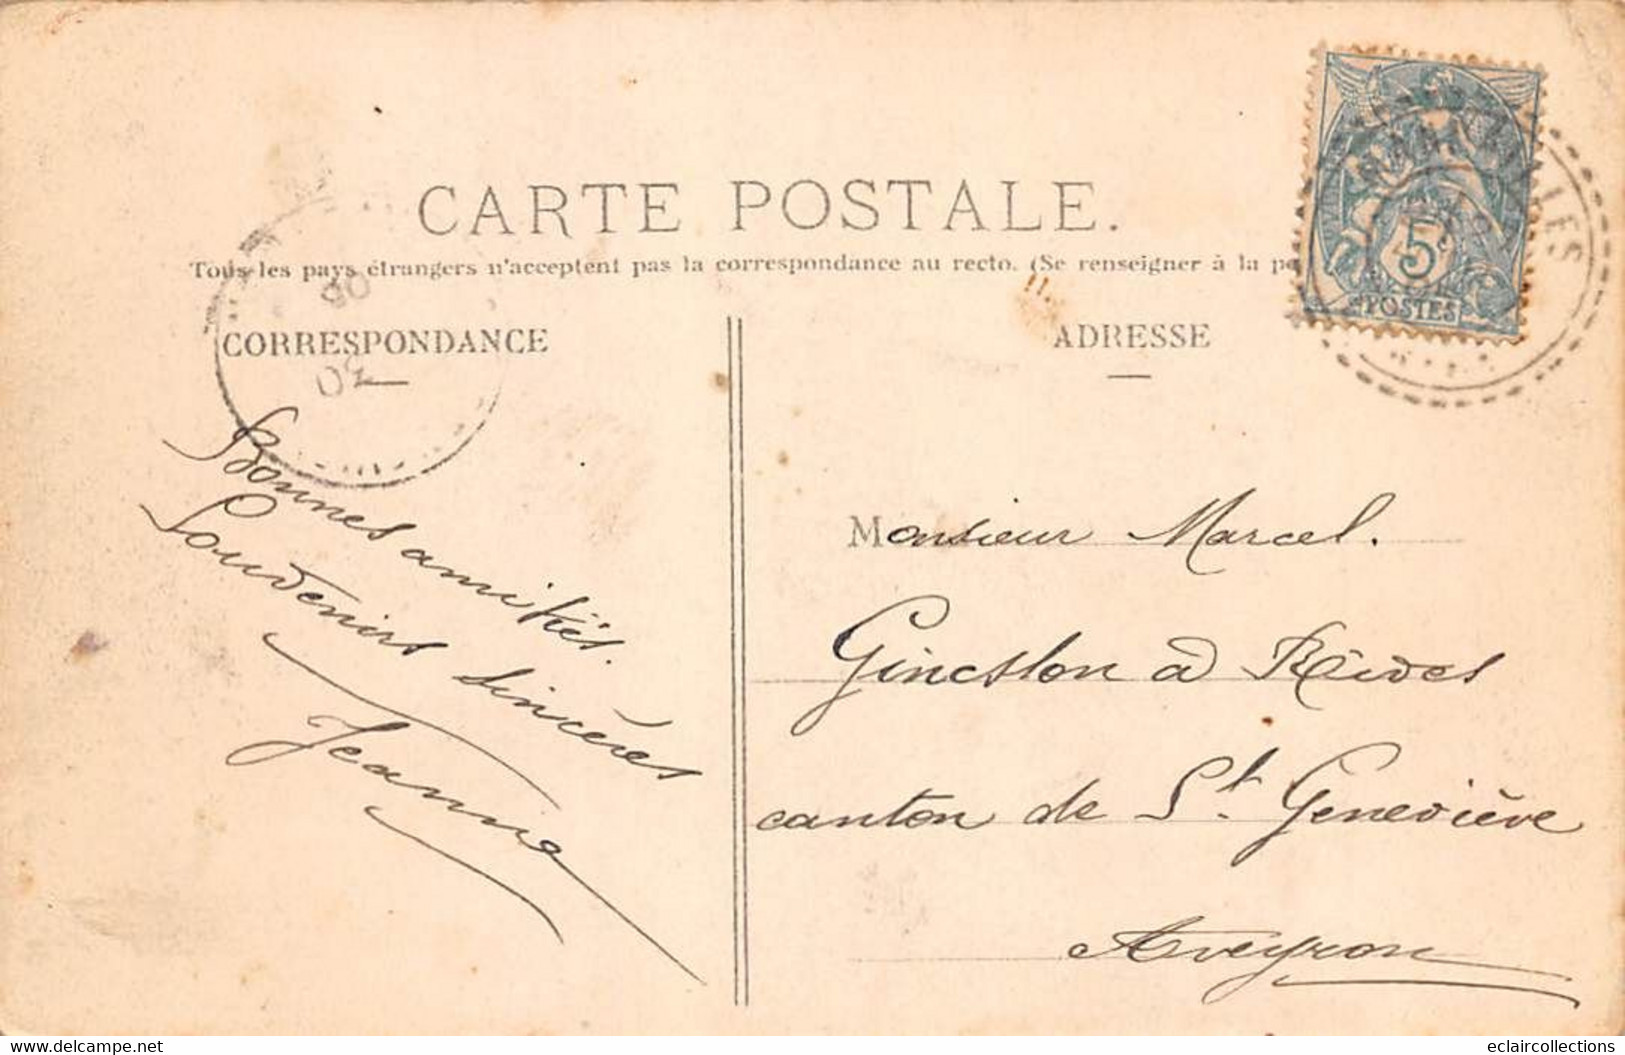 CARTE POSTALE.
Tous les pays étrangers n'acceptent pas la correspondance au recto. (Se renseigner à la
CORRESPONDANCE
ADRESSE
5
POSTES
Bonnes amitiés.
Souvenirs sincères
Jeanne
Monsieur Marcel.
Gineston à
canton de St. Geneviève
Aveyron
www.delcampe.net
eclaircollections